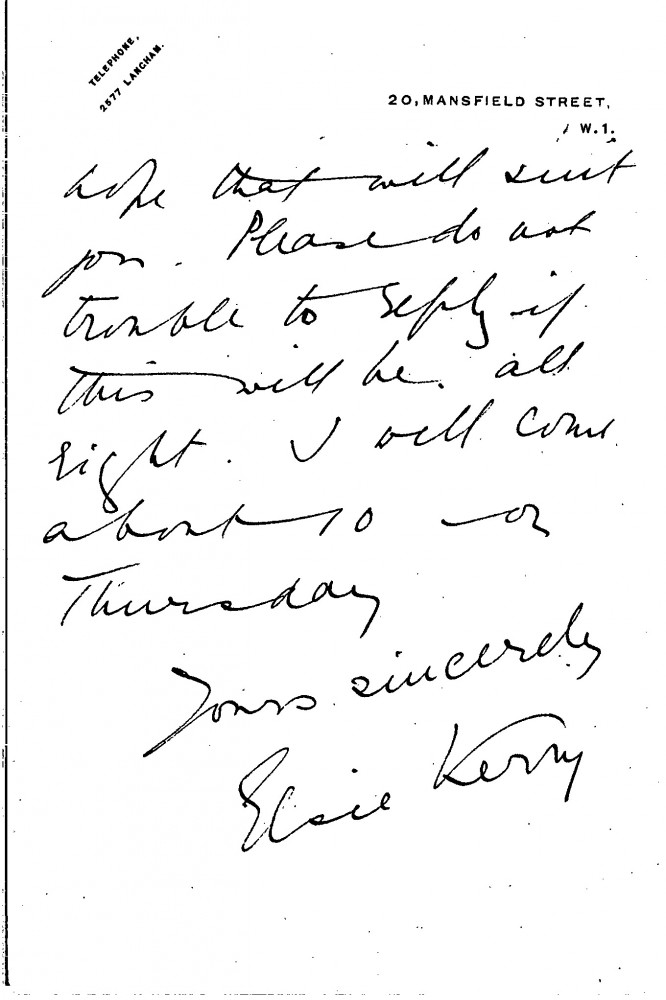 TELEPHONE,
2577 LANGHAM.
20, MANSFIELD STREET,
W.1.
hope that will suit
you. Please do not
trouble to reply if
this will be all
right. I will come
about 10 on
Thursday
Yours sincerely
Elsie Kerry